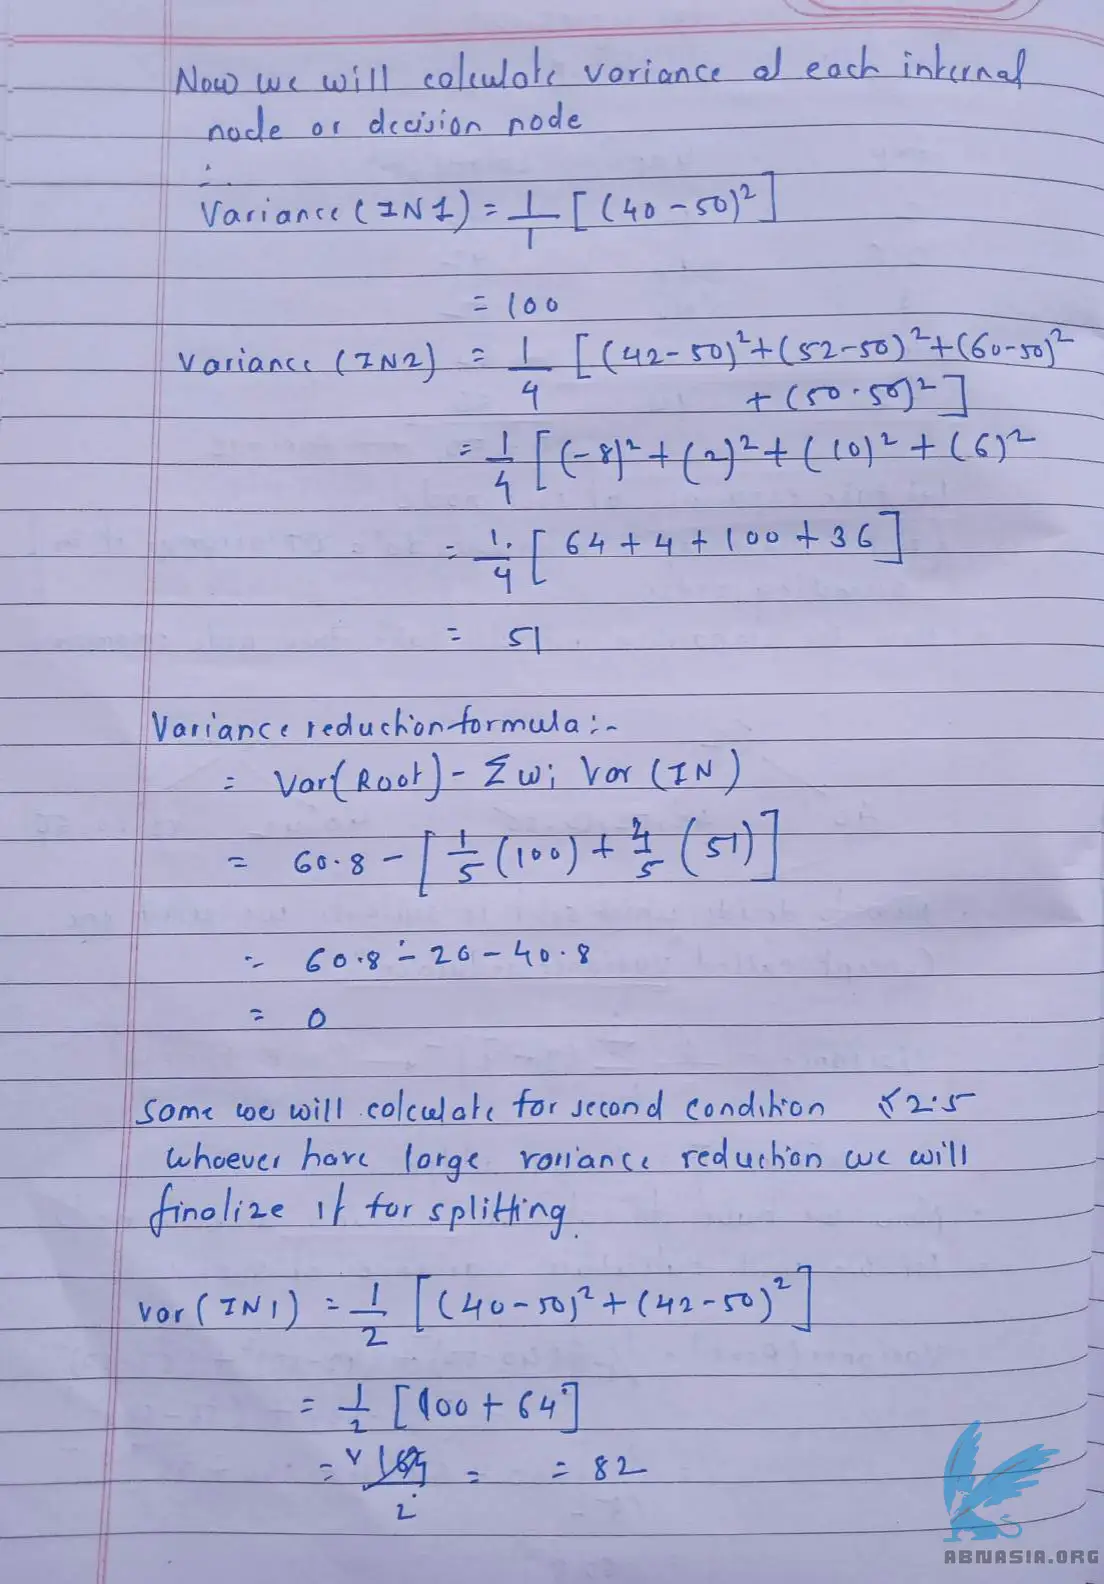 Now we will calculate variance of each internal
node or decision node
Variance (IN1) = 1/1 [(40-50)²]
= 100
Variance (IN2) = 1/4 [(42-50)²+(52-50)²+(60-50)²
+ (50-50)²]
= 1/4 [(-8)²+(2)²+(10)²+(6)²
= 1/4 [64+4+100+36]
= 51
Variance reduction formula:-
= Var(Root) - Σ wi Var (IN)
= 60.8 - [1/5 (100) + 4/5 (51)]
= 60.8 - 20 - 40.8
= 0
Same we will calculate for second condition ≤2.5
whoever have large variance reduction we will
finalize it for splitting.
var(IN1) = 1/2 [(40-50)²+(42-50)²]
= 1/2 [100+64]
= 164/2 = = 82
ABNASIA.ORG